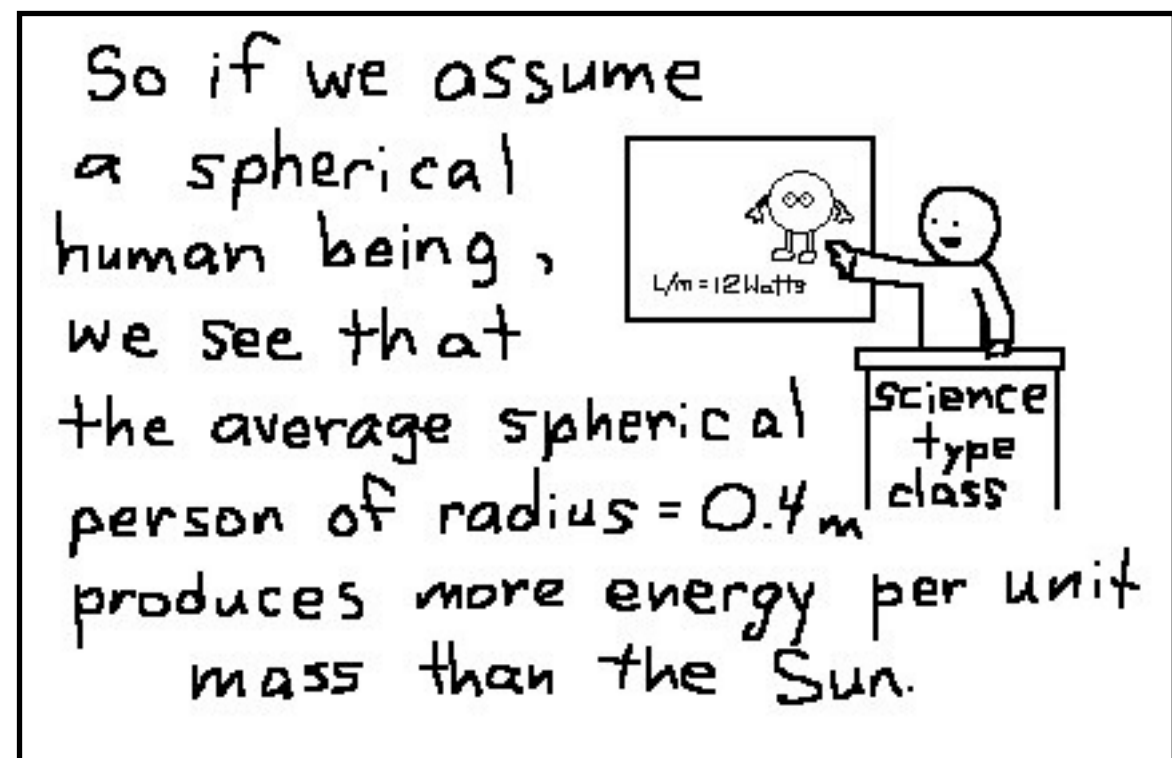 So if we assume
a spherical
human being,
we see that
the average spherical
person of radius = 0.4m
produces more energy per unit
mass than the Sun.
L/m = 12 Watts
science
type
class